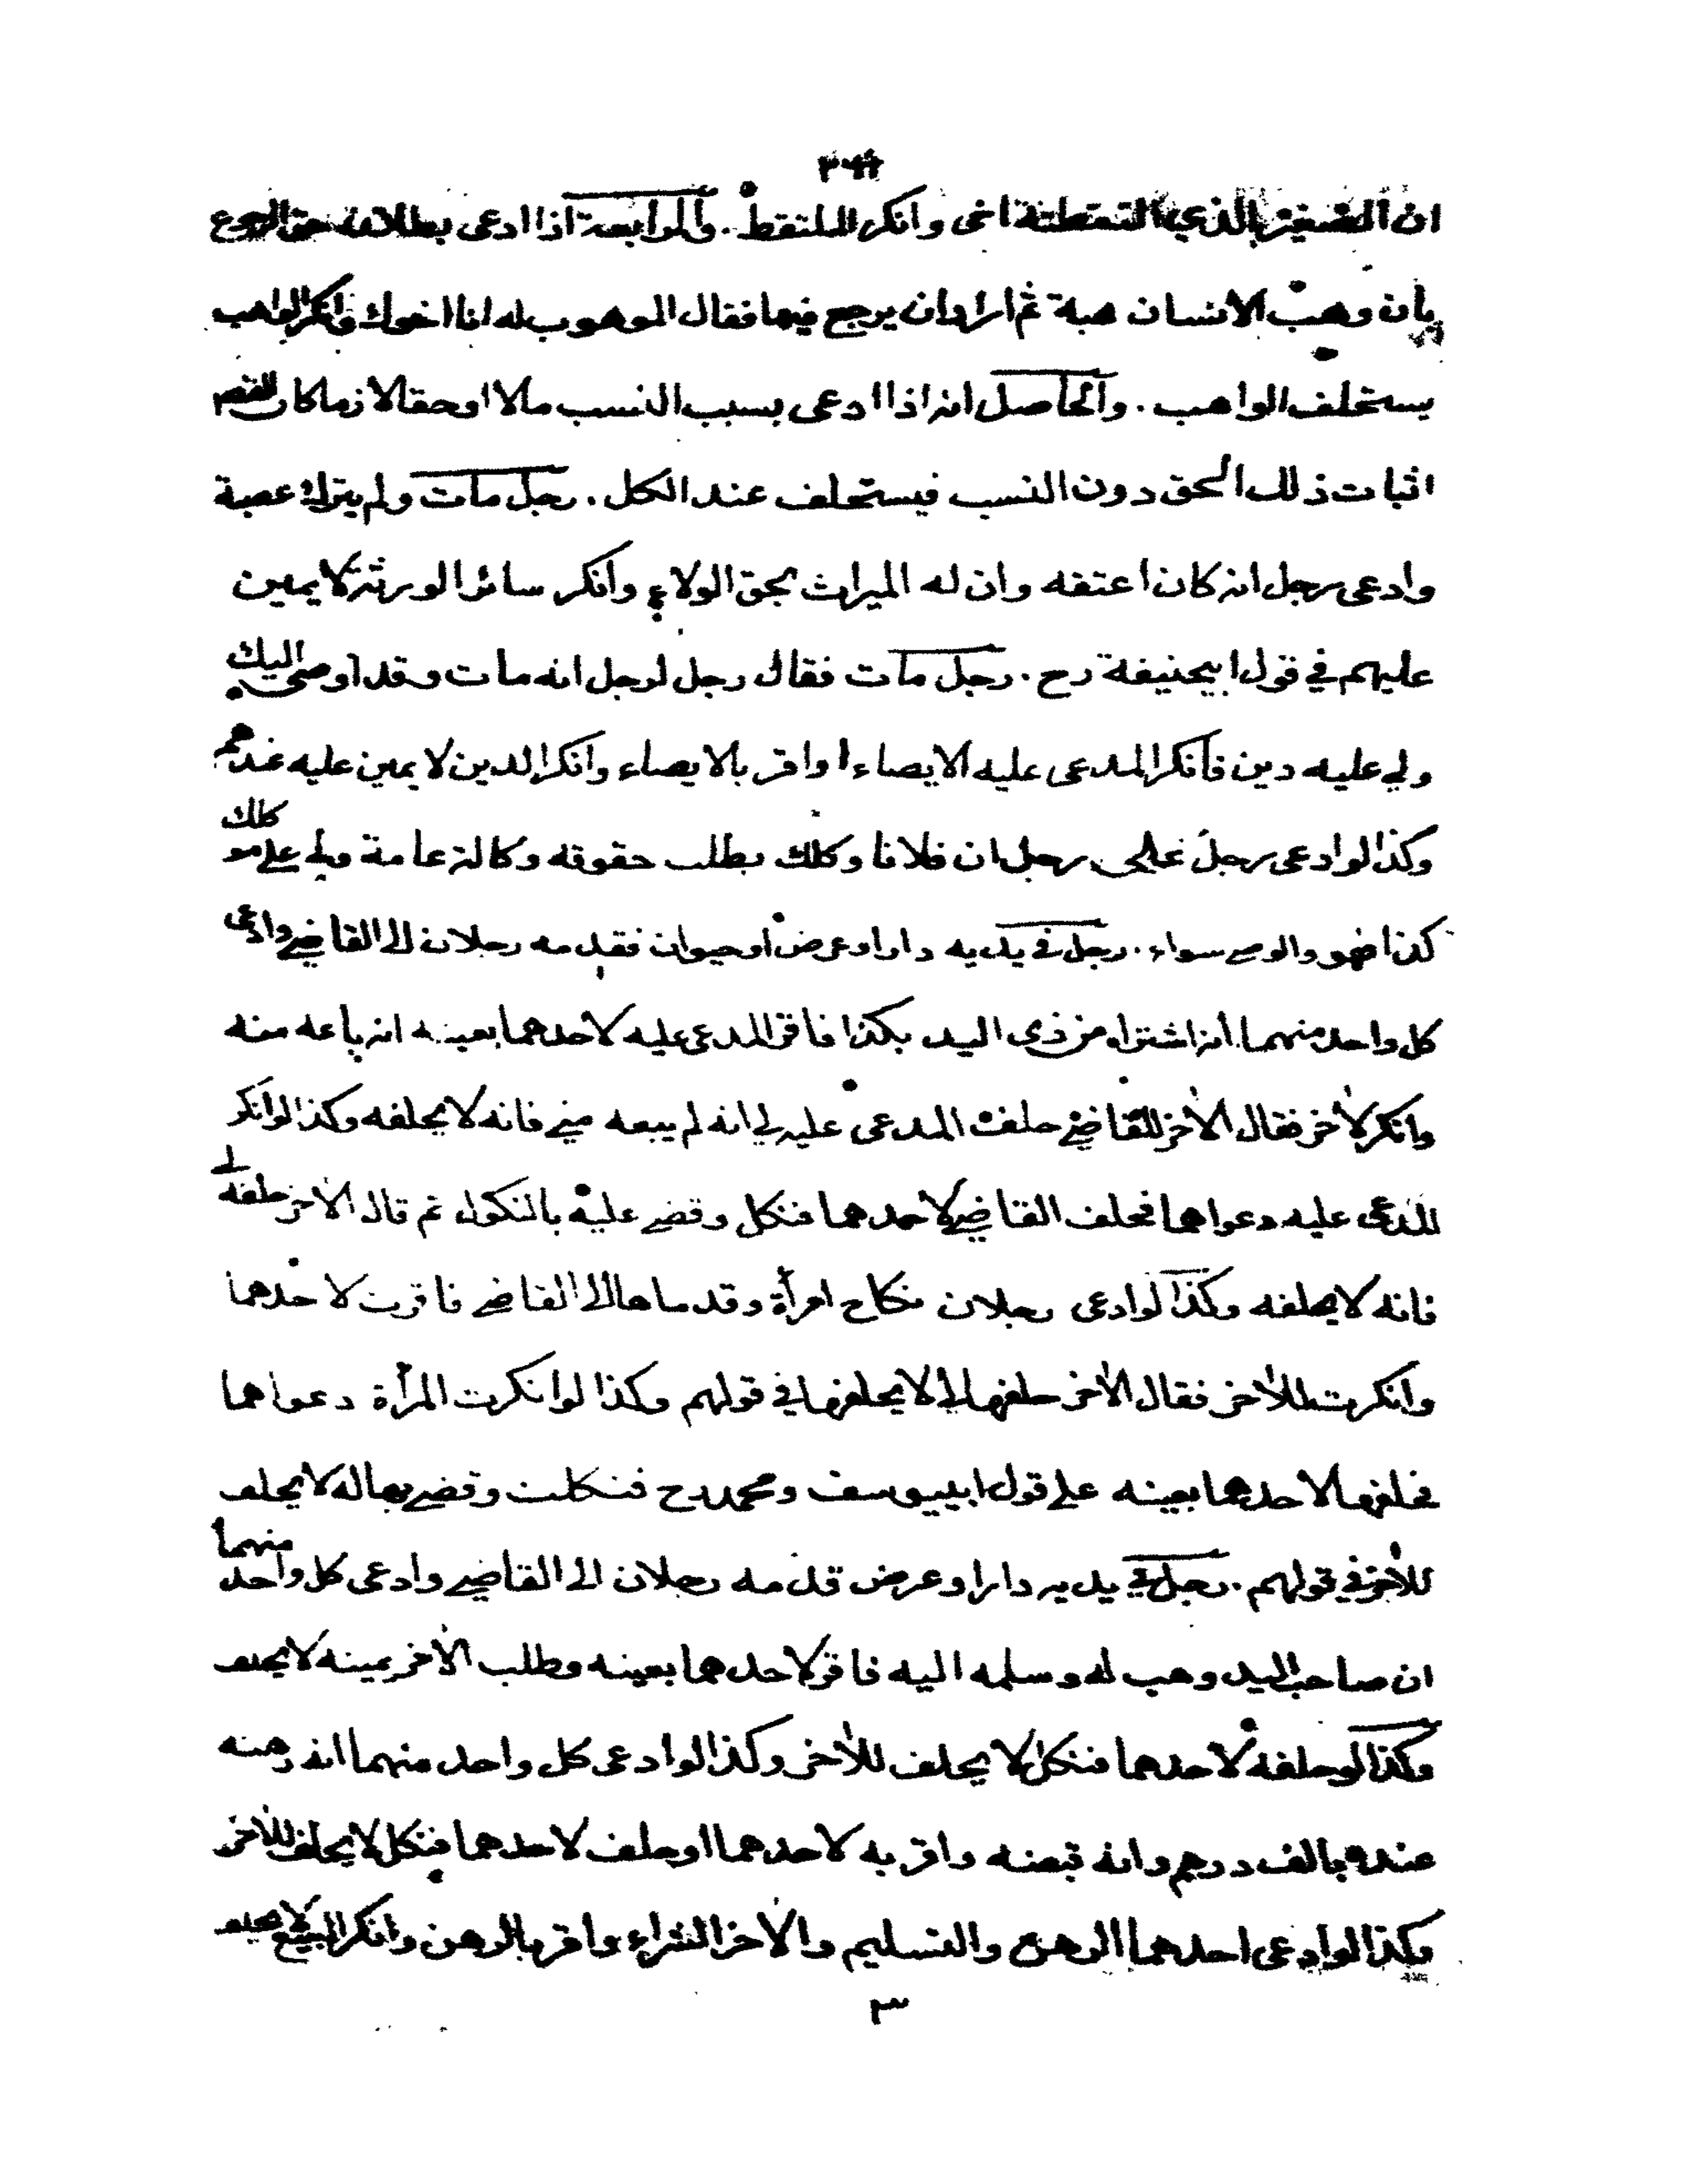 ان الصغير الذي التقطته اخى وانكر الملتقط . والرابعة اذا ادعى بطلان حق الرجوع
بأن وهب لانسان هبة ثم اراد ان يرجع فيها فقال الموهوب له انا اخوك وانكر الواهب
يستحلف الواهب . والحاصل انه اذا ادعى بسبب النسب مالا او حقا لازما كان القصد
اثبات ذلك الحق دون النسب فيستحلف عند الكل . رجل مات ولم يترك عصبة
وادعى رجل انه كان اعتقه وان له الميراث بحق الولاء وانكر سائر الورثة لا يمين
عليهم في قول ابيحنيفة رح . رجل مات فقال رجل لرجل انه مات وقد اوصى اليك
ولي عليه دين فأنكر المدعى عليه الايصاء او اقر بالايصاء وانكر الدين لا يمين عليه عندهم
وكذا لو ادعى رجل على رجل ان فلانا وكلك بطلب حقوقه وكالة عامة ولي على موكلك
كذا فهو والوصي سواء . رجل في يديه دار او عرض او حيوان فقدمه رجلان الى القاضي وادعى
كل واحد منهما انه اشتراه من ذى اليد بكذا فاقر المدعى عليه لاحدهما بعينه انه باعه منه
وانكر لأخر فقال الأخر للقاضي حلف المدعى عليه لي انه لم يبعه مني فانه لا يحلفه وكذا لو انكر
المدعى عليه دعواهما فحلف القاضي لاحدهما فنكل وقضى عليه بالنكول ثم قال الأخر حلفه لي
فانه لا يحلفه وكذا لو ادعى رجلان نكاح امرأة وقدماها الى القاضي فاقرت لاحدهما
وانكرت للأخر فقال الأخر حلفها لي لا يحلفها في قولهم وكذا لو انكرت المرأة دعواهما
فحلفها لاحدهما بعينه على قول ابييوسف ومحمد رح فنكلت وقضى بها له لا يحلف
للأخر في قولهم . رجل في يديه دار او عرض قدمه رجلان الى القاضي وادعى كل واحد منهما
ان صاحب اليد وهب له وسلمه اليه فاقر لاحدهما بعينه وطلب الأخر يمينه لا يحلف
وكذا لو حلفه لاحدهما فنكل لا يحلف للأخر وكذا لو ادعى كل واحد منهما انه رهنه
عنده بالف درهم وانه قبضه واقر به لاحدهما او حلف لاحدهما فنكل لا يحلف للأخر
وكذا لو ادعى احدهما الرهن والتسليم والأخر الشراء واقر بالرهن وانكر البيع لا يحلف